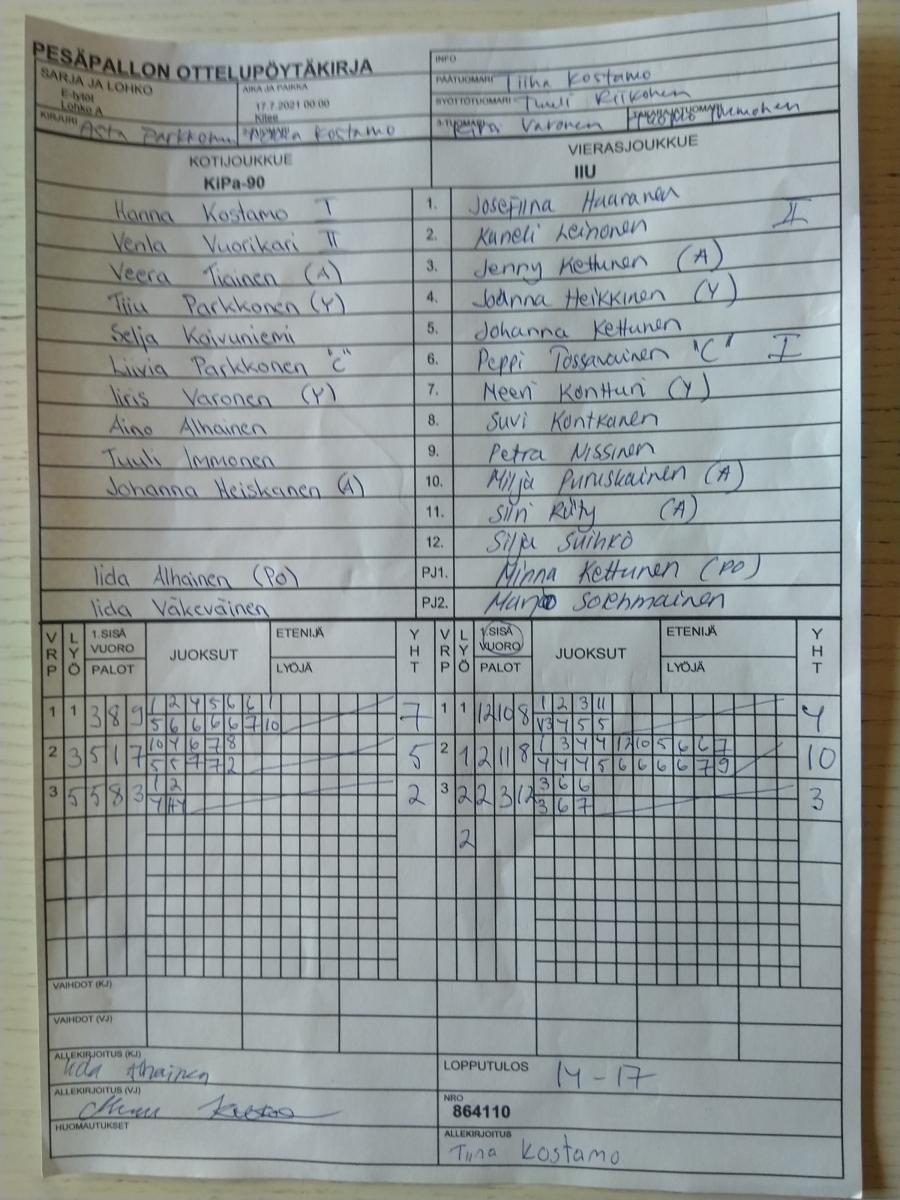 PESÄPALLON OTTELUPÖYTÄKIRJA
INFO
SARJA JA LOHKO
E-tytöt
Lohko A
AIKA JA PAIKKA
17.7.2021 00:00
Kitee
PÄÄTUOMARI Tiina Kostamo
SYÖTTÖTUOMARI Tuuli Riikonen
KIRJURI Asta Parkkonen
Kostamo
3-TUOMARI Varonen
TAKARAJATUOMARI
KOTIJOUKKUE
KiPa-90
VIERASJOUKKUE
IIU
Hanna Kostamo I 1. Josefiina Haaranen
Venla Vuorikari II 2. Kaneli Leinonen II
Veera Tiainen (A) 3. Jenny Kettunen (A)
Tiiu Parkkonen (Y) 4. Joanna Heikkinen (Y)
Selja Koivuniemi 5. Johanna Kettunen
Liivia Parkkonen "C" 6. Peppi Tossavainen "C" I
Iiris Varonen (Y) 7. Neeri Kontturi (Y)
Aino Alhainen 8. Suvi Kontkanen
Tuuli Immonen 9. Petra Nissinen
Johanna Heiskanen (A) 10. Milja Puruskainen (A)
11. Siiri Räty (A)
12. Silja Suihko
Iida Alhainen (PO) PJ1. Minna Kettunen (PO)
Iida Väkeväinen PJ2.
VRP LYÖ 1.SISÄ VUORO PALOT JUOKSUT ETENIJÄ LYÖJÄ YHT VRP LYÖ 1.SISÄ VUORO PALOT JUOKSUT ETENIJÄ LYÖJÄ YHT
1 1 3 8 9 1 2 4 5 6 6 1 7 1 1 12 10 8 1 2 3 11 4
5 6 6 6 6 7 10 V3 4 5 5
2 3 5 1 7 10 4 6 7 8 5 2 1 12 11 8 1 3 4 4 12 10 5 6 6 7 10
5 5 7 7 2 4 4 4 5 6 6 6 6 7 9
3 5 5 8 3 1 2 2 3 2 2 3 12 3 6 6 3
4 3 6 7
2
VAIHDOT (KJ)
VAIHDOT (VJ)
ALLEKIRJOITUS (KJ)
Iida Alhainen
LOPPUTULOS 14-17
ALLEKIRJOITUS (VJ)
NRO
864110
HUOMAUTUKSET
ALLEKIRJOITUS
Tiina Kostamo